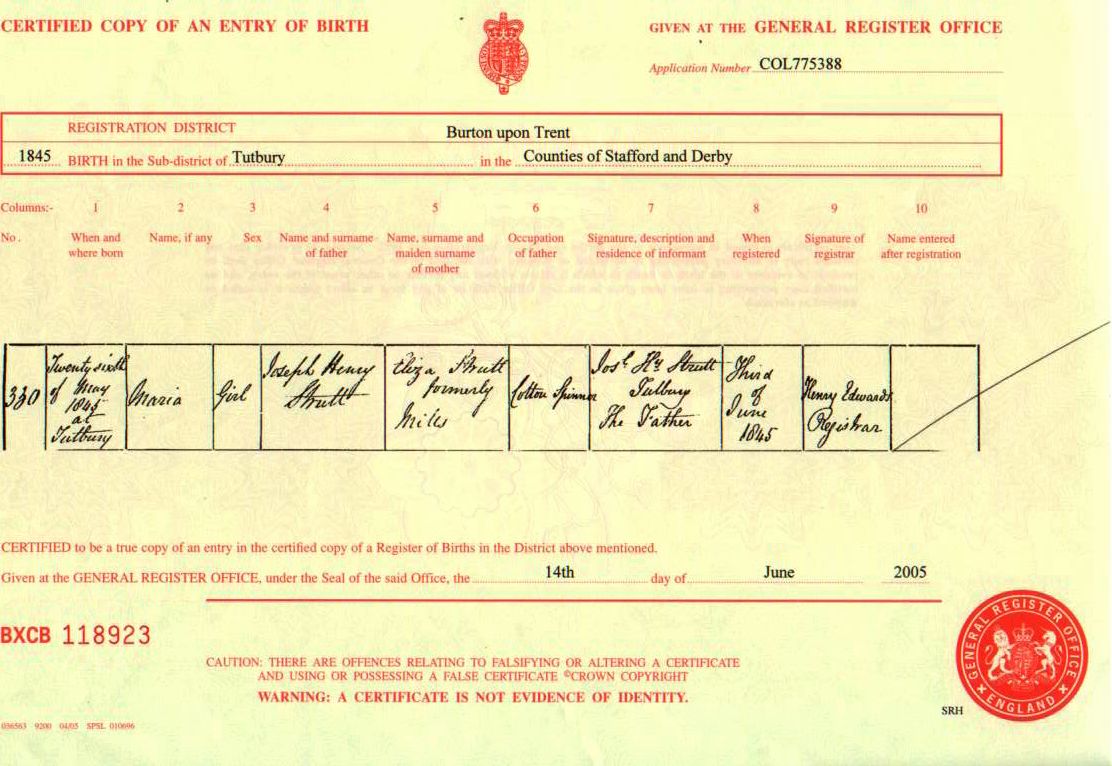 CERTIFIED COPY OF AN ENTRY OF BIRTH
GIVEN AT THE GENERAL REGISTER OFFICE
Application Number COL775388
REGISTRATION DISTRICT Burton upon Trent
1845 BIRTH in the Sub-district of Tutbury in the Counties of Stafford and Derby
Columns:- 1 2 3 4 5 6 7 8 9 10
No. When and where born Name, if any Sex Name and surname of father Name, surname and maiden surname of mother Occupation of father Signature, description and residence of informant When registered Signature of registrar Name entered after registration
330
Twenty sixth
of May
1845
at
Tutbury
Maria
Girl
Joseph Henry
Strutt
Eliza Strutt
formerly
Mills
Cotton Spinner
Josh Hy Strutt
Tutbury
The Father
Third
of
June
1845
Henry Edwards
Registrar
CERTIFIED to be a true copy of an entry in the certified copy of a Register of Births in the District above mentioned.
Given at the GENERAL REGISTER OFFICE, under the Seal of the said Office, the 14th day of June 2005
BXCB 118923
CAUTION: THERE ARE OFFENCES RELATING TO FALSIFYING OR ALTERING A CERTIFICATE
AND USING OR POSSESSING A FALSE CERTIFICATE ©CROWN COPYRIGHT
WARNING: A CERTIFICATE IS NOT EVIDENCE OF IDENTITY.
GENERAL REGISTER OFFICE
ENGLAND
SRH
036563 9200 04/05 SPSL 010696